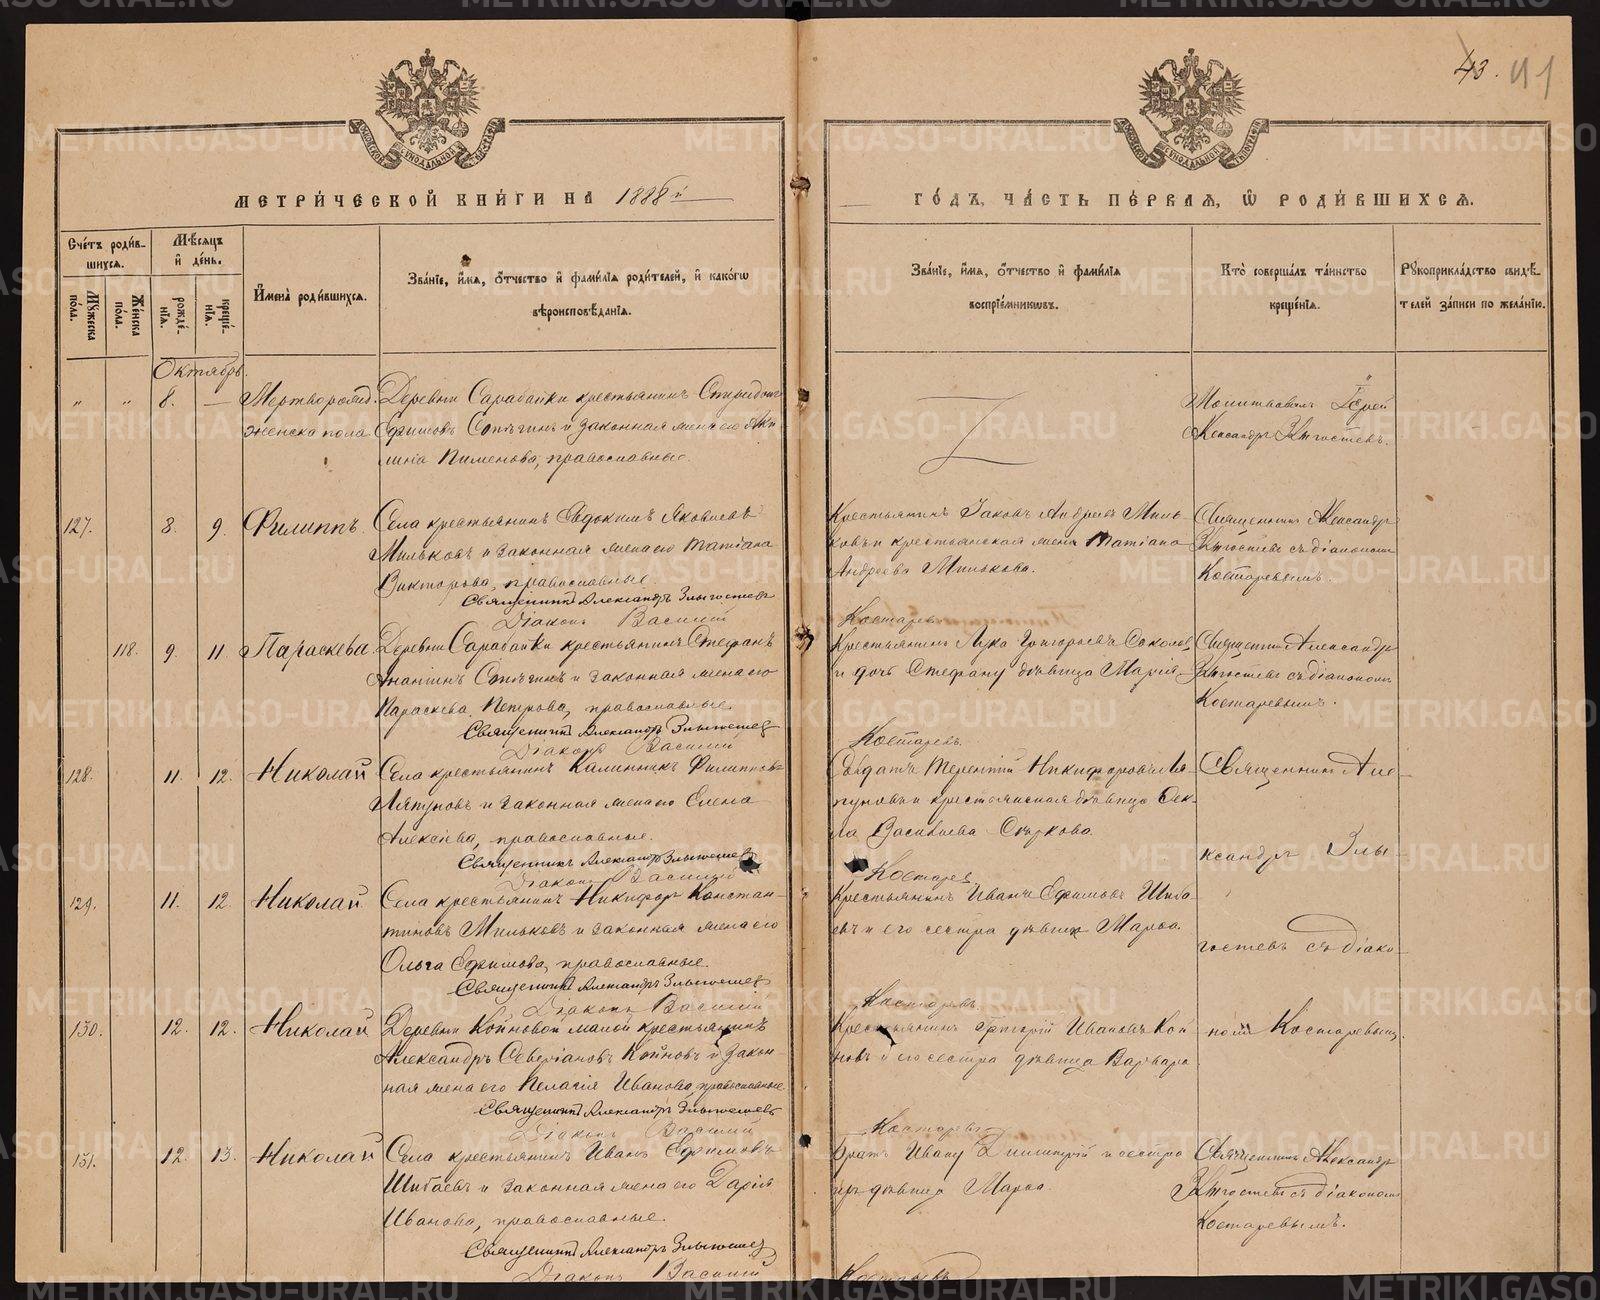 METRIKI.GASO-URAL.RU
43. 41
МОСКОВСКОЙ СѴНОДАЛЬНОЙ ТИПОГРАФІИ
МЕТРИ́ЧЕСКОЙ КНИ́ГИ НА 1888й
ГО́ДЪ, ЧА́СТЬ ПЕ́РВАЯ, Ѽ РОДИ́ВШИХСЯ.
Сче́тъ роди́в-
шихся.
Му́жеска по́ла.
Же́нска по́ла.
Мѣ́сяцъ
и҆ де́нь.
рожде́-
нїя.
креще́-
нїя.
И҆мена̀ роди́вшихся.
Зва́нїе, и҆́мя, ѻ҆́тчество и҆ фами́лїя роди́телей, и҆ како́гѡ
вѣроисповѣ́данїя.
Зва́нїе, и҆́мя, ѻ҆́тчество и҆ фами́лїя
воспрїе́мникѡвъ.
Кто̀ соверша́лъ та́инство
креще́нїя.
Рꙋкоприкла́дство свидѣ́-
телей за́писи по жела́нїю.
Октябрь.
" " 8. — Мертворожд.
женска пола
Деревни Сарабайки крестьянинъ Спиридонъ
Ефимовъ Сопѣгинъ и законная жена его Аки
лина Пименова, православные.
Іерей
Александръ Злыгостевъ.
127. 8. 9. Филиппъ
Села крестьянинъ Евдокимъ Яковлевъ
Мильковъ и законная жена его Татіана
Викторова, православные.
Священникъ Александръ Злыгостевъ
Діаконъ Василій Костаревъ
Крестьянинъ Іаковъ Андреевъ Миль-
ковъ и крестьянская жена Татіана
Андреева Милькова.
Священникъ Александръ
Злыгостевъ съ діакономъ
Костаревымъ.
118. 9. 11. Параскева
Деревни Сарабайки крестьянинъ Стефанъ
Ананьинъ Сопѣгинъ и законная жена его
Параскева Петрова, православные.
Священникъ Александръ Злыгостевъ
Діаконъ Василій Костаревъ.
Крестьянинъ Лука Григорьевъ Соколовъ
и дочь Стефану дѣвица Марія
Священникъ Александръ
Злыгостевъ съ діакономъ
Костаревымъ.
128. 11. 12. Николай
Села крестьянинъ Калинникъ Филиппов-
Ляпуновъ и законная жена его Елена
Алексѣева, православные.
Священникъ Александръ Злыгостевъ
Діаконъ Василій Костаревъ
Солдатъ Терентій Никифоровъ Ля-
пуновъ и крестьянская дѣвица Фек-
ла Васильева
Священникъ Але-
ксандръ Злы-
гостевъ съ діако-
номъ Костаревымъ.
129. 11. 12. Николай
Села крестьянинъ Никифоръ Констан-
тиновъ Мильковъ и законная жена его
Ольга Ефимова, православные.
Священникъ Александръ Злыгостевъ
Діаконъ Василій Костаревъ.
Крестьянинъ Иванъ Ефимовъ Шиба-
евъ и его сестра дѣвица Марѳа.
130. 12. 12. Николай
Деревни Койновой малой крестьянинъ
Александръ Северіановъ Койновъ и закон-
ная жена его Пелагія Иванова, православные
Священникъ Александръ Злыгостевъ
Діаконъ Василій Костаревъ
Крестьянинъ Григорій Ивановъ Кой
новъ и его сестра дѣвица Варвара
131. 12. 13. Николай
Села крестьянинъ Иванъ Ефимовъ
Шибаевъ и законная жена его Дарія
Иванова, православные.
Священникъ Александръ Злыгостевъ
Діаконъ Василій Костаревъ
Братъ Ивану Димитрій и сестра
дѣвица Марѳа
Священникъ Александръ
Злыгостевъ съ діакономъ
Костаревымъ.